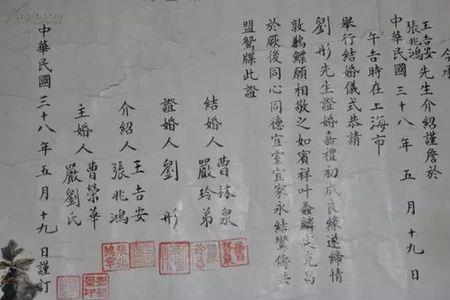 今承
王吉安
張兆鴻
先生介紹謹詹於
中華民國三十八年五月十九日
午吉時在上海市
舉行結婚儀式恭請
劉彤先生證婚嘉禮初成良緣遂締情
敦鶼鰈願相敬之如賓祥叶螽麟定克昌
於厥後同心同德宜室宜家永結鸞儔共
盟鴛牒此證
結婚人
曹泉
嚴玲弟
證婚人劉彤
介紹人
王吉安
張兆鴻
主婚人
曹榮華
嚴劉氏
中華民國三十八年五月十九日謹訂